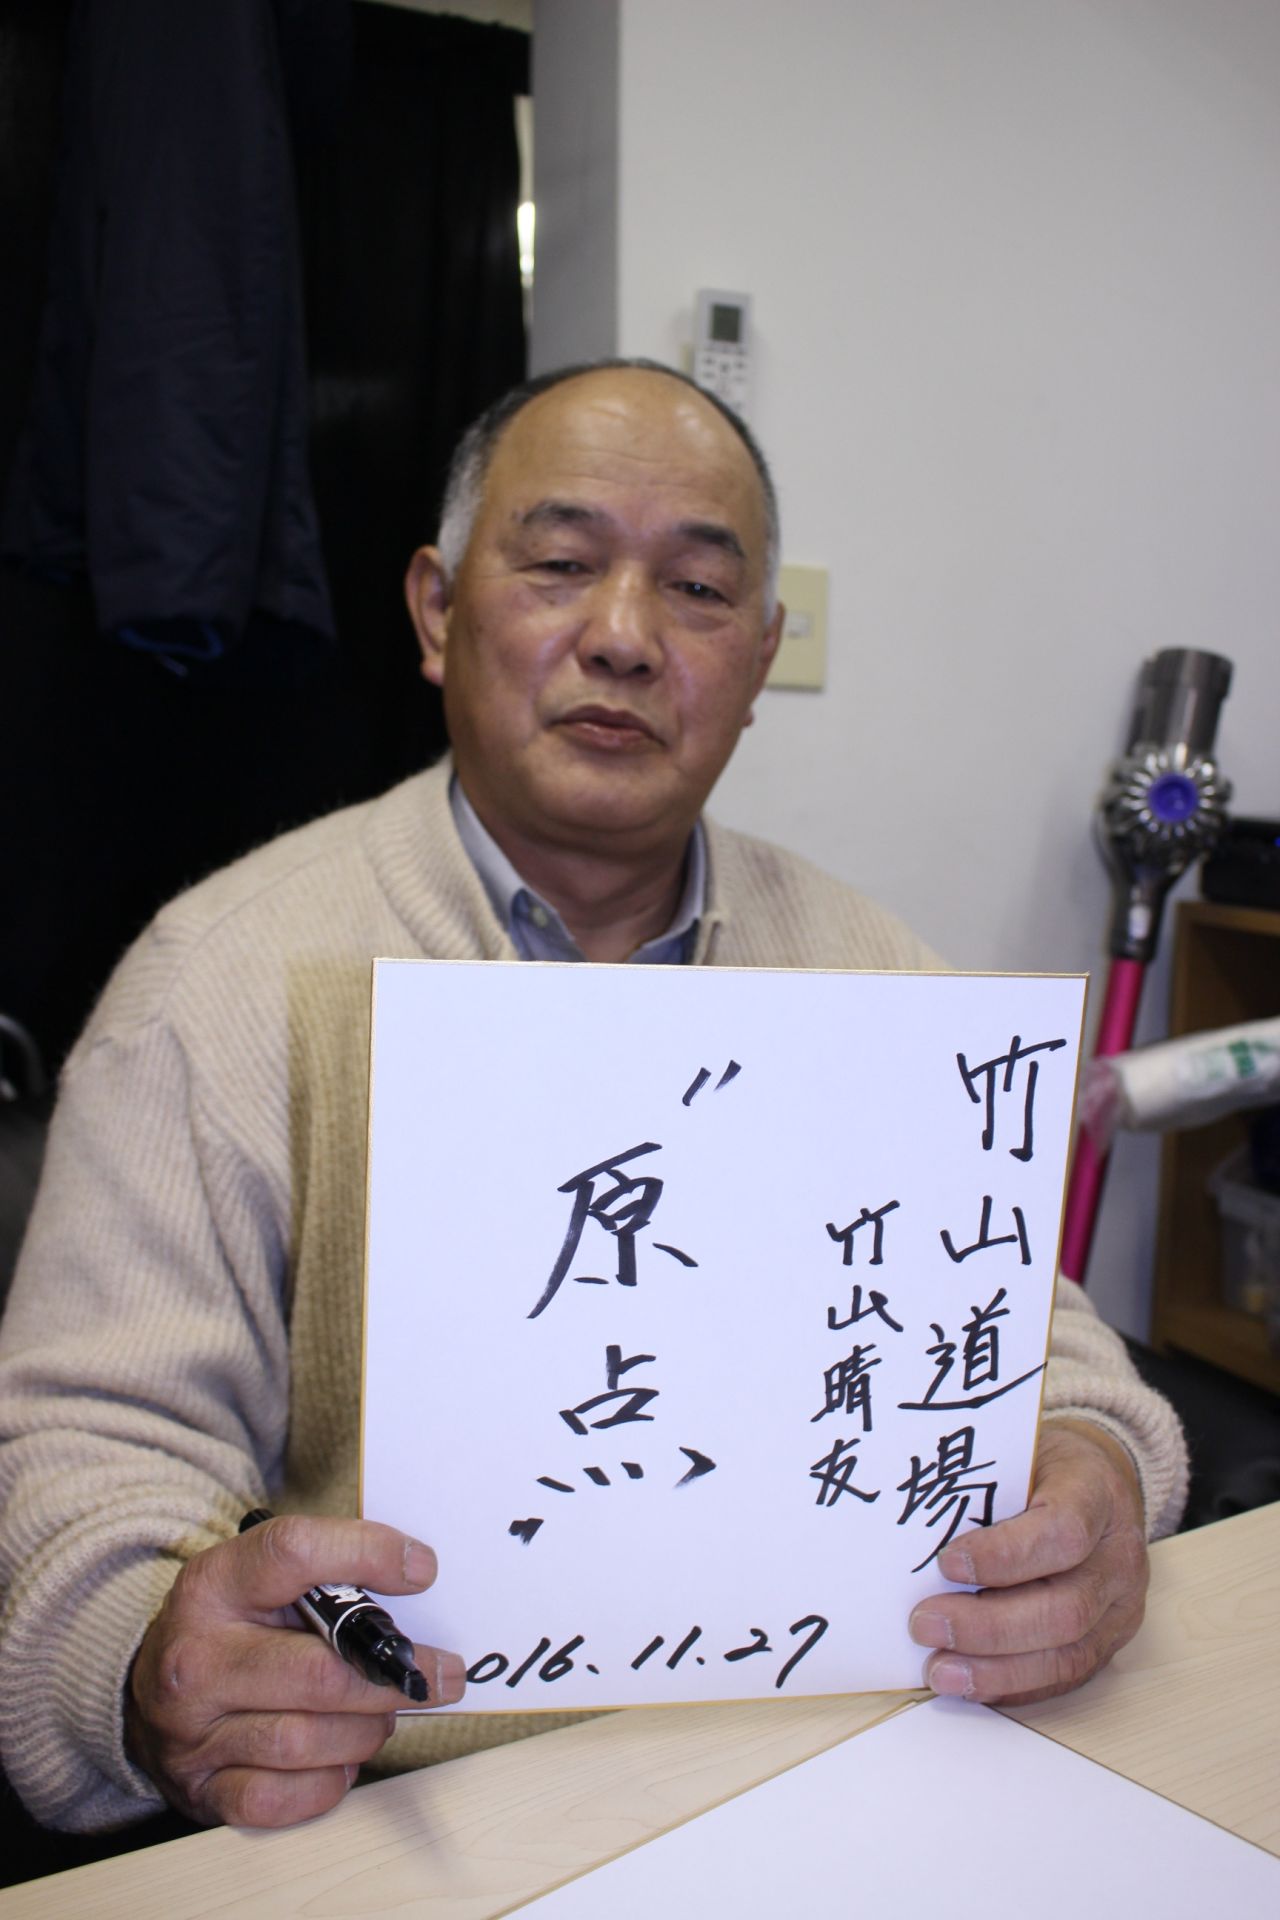 竹山道場
竹山晴友
"原点"
016.11.27